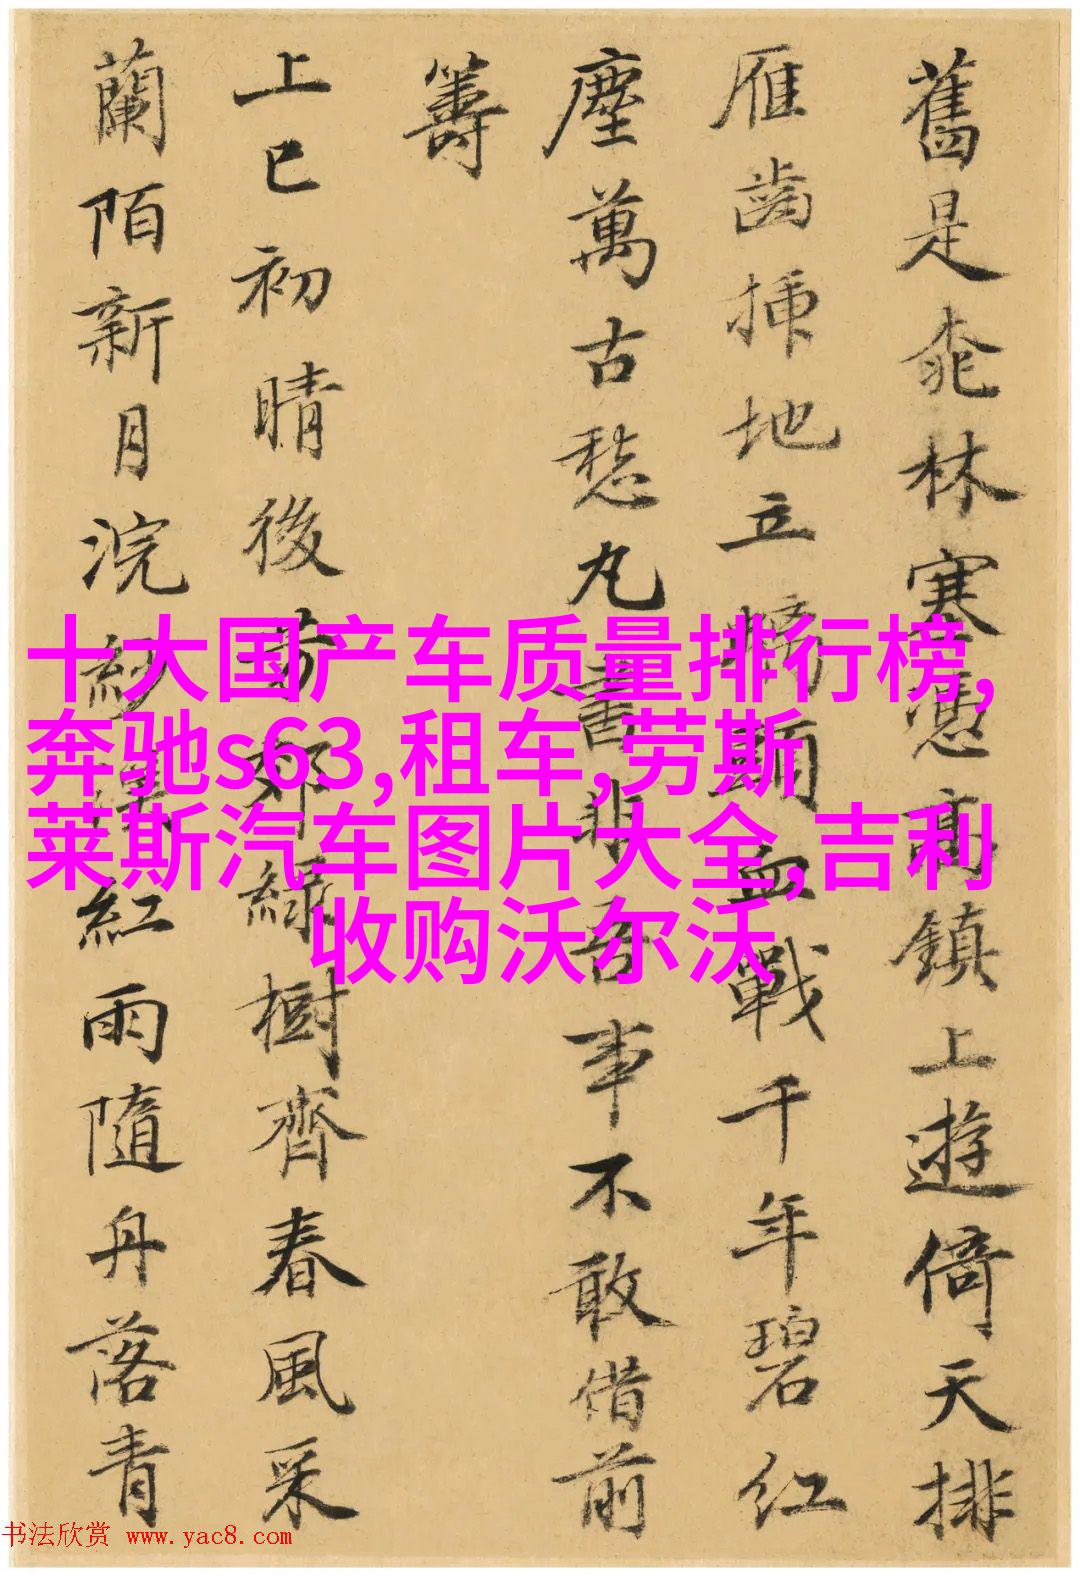 舊是桃林塞憑高鎮上遊倚天排
雁齒插地立頭血戰千年碧紅
塵萬古愁丸書非吾事不敢借前
籌
上巳初晴後芳郊綠樹齊春風采
蘭陌新月浣紗溪紅雨隨舟落青
十大国产车质量排行榜,
奔驰s63,租车,劳斯
莱斯汽车图片大全,吉利
收购沃尔沃,
书法欣赏 www.yac8.com